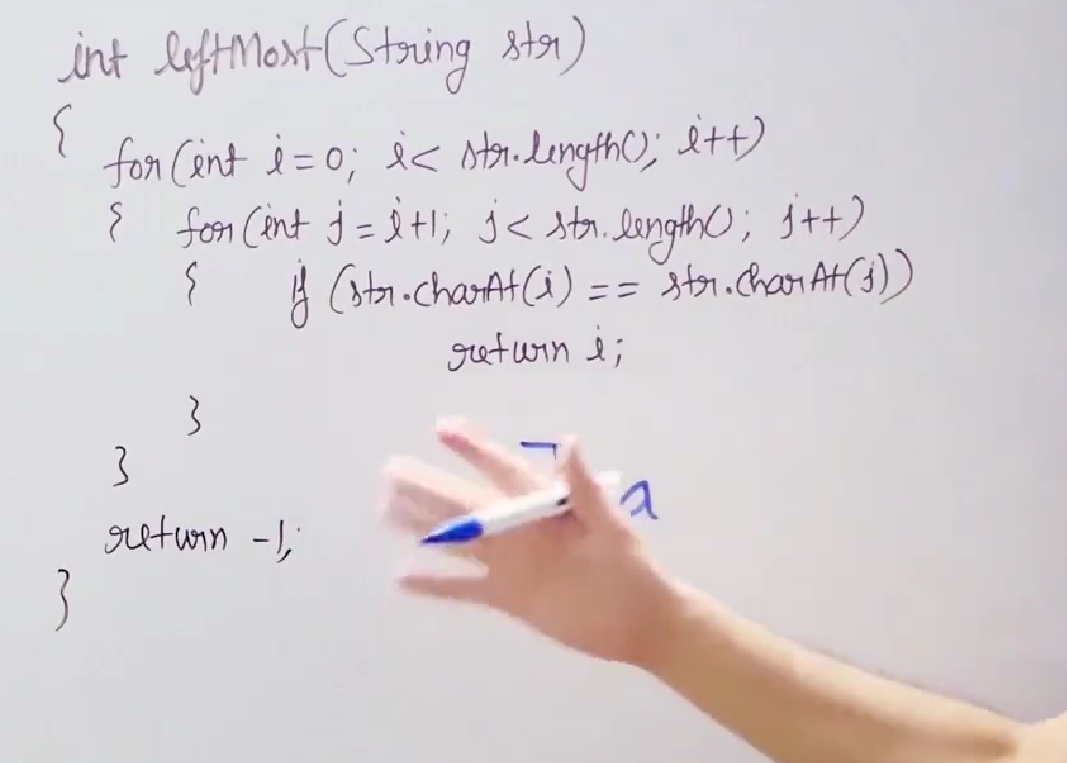 int leftMost(String str)
{
for(int i=0; i< str.length(); i++)
{ for(int j=i+1; j< str.length(); j++)
{ if (str.charAt(i) == str.charAt(j))
return i;
}
}
return -1;
}